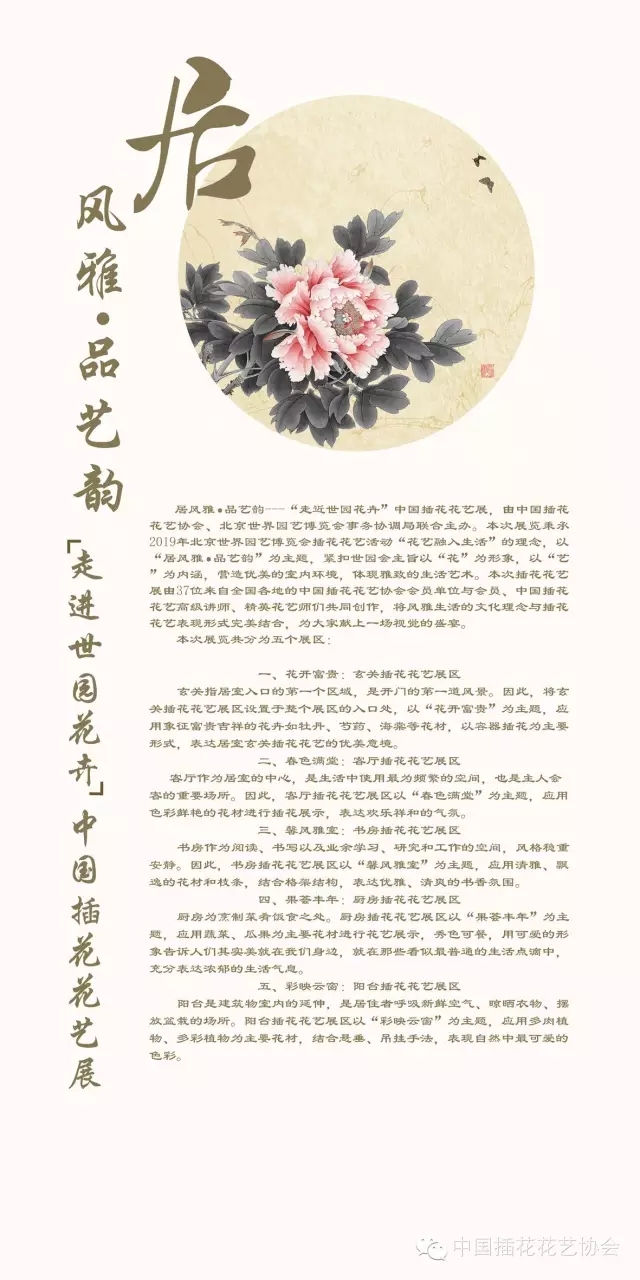 居
风雅·品艺韵
「走进世园花卉」中国插花花艺展
居风雅•品艺韵---“走近世园花卉”中国插花花艺展，由中国插花
花艺协会、北京世界园艺博览会事务协调局联合主办。本次展览秉承
2019年北京世界园艺博览会插花花艺活动“花艺融入生活”的理念，以
“居风雅•品艺韵”为主题，紧扣世园会主旨以“花”为形象，以“艺
”为内涵，营造优美的室内环境，体现雅致的生活艺术。本次插花花艺
展由37位来自全国各地的中国插花花艺协会会员单位与会员、中国插花
花艺高级讲师、精英花艺师们共同创作，将风雅生活的文化理念与插花
花艺表现形式完美结合，为大家献上一场视觉的盛宴。
本次展览共分为五个展区：
一、花开富贵：玄关插花花艺展区
玄关指居室入口的第一个区域，是开门的第一道风景。因此，将玄
关插花花艺展区设置于整个展区的入口处，以“花开富贵”为主题，应
用象征富贵吉祥的花卉如牡丹、芍药、海棠等花材，以容器插花为主要
形式，表达居室玄关插花花艺的优美意境。
二、春色满堂：客厅插花花艺展区
客厅作为居室的中心，是生活中使用最为频繁的空间，也是主人会
客的重要场所。因此，客厅插花花艺展区以“春色满堂”为主题，应用
色彩鲜艳的花材进行插花展示，表达欢乐祥和的气氛。
三、馨风雅室：书房插花花艺展区
书房作为阅读、书写以及业余学习、研究和工作的空间，风格稳重
安静。因此，书房插花花艺展区以“馨风雅室”为主题，应用清雅、飘
逸的花材和枝条，结合格架结构，表达优雅、清爽的书香氛围。
四、果荟丰年：厨房插花花艺展区
厨房为烹制菜肴饭食之处。厨房插花花艺展区以“果荟丰年”为主
题，应用蔬菜、瓜果为主要花材进行花艺展示，秀色可餐，用可爱的形
象告诉人们其实美就在我们身边，就在那些看似最普通的生活点滴中，
充分表达浓郁的生活气息。
五、彩映云窗：阳台插花花艺展区
阳台是建筑物室内的延伸，是居住者呼吸新鲜空气、晾晒衣物、摆
放盆栽的场所。阳台插花花艺展区以“彩映云窗”为主题，应用多肉植
物、多彩植物为主要花材，结合悬垂、吊挂手法，表现自然中最可爱的
色彩。
中国插花花艺协会